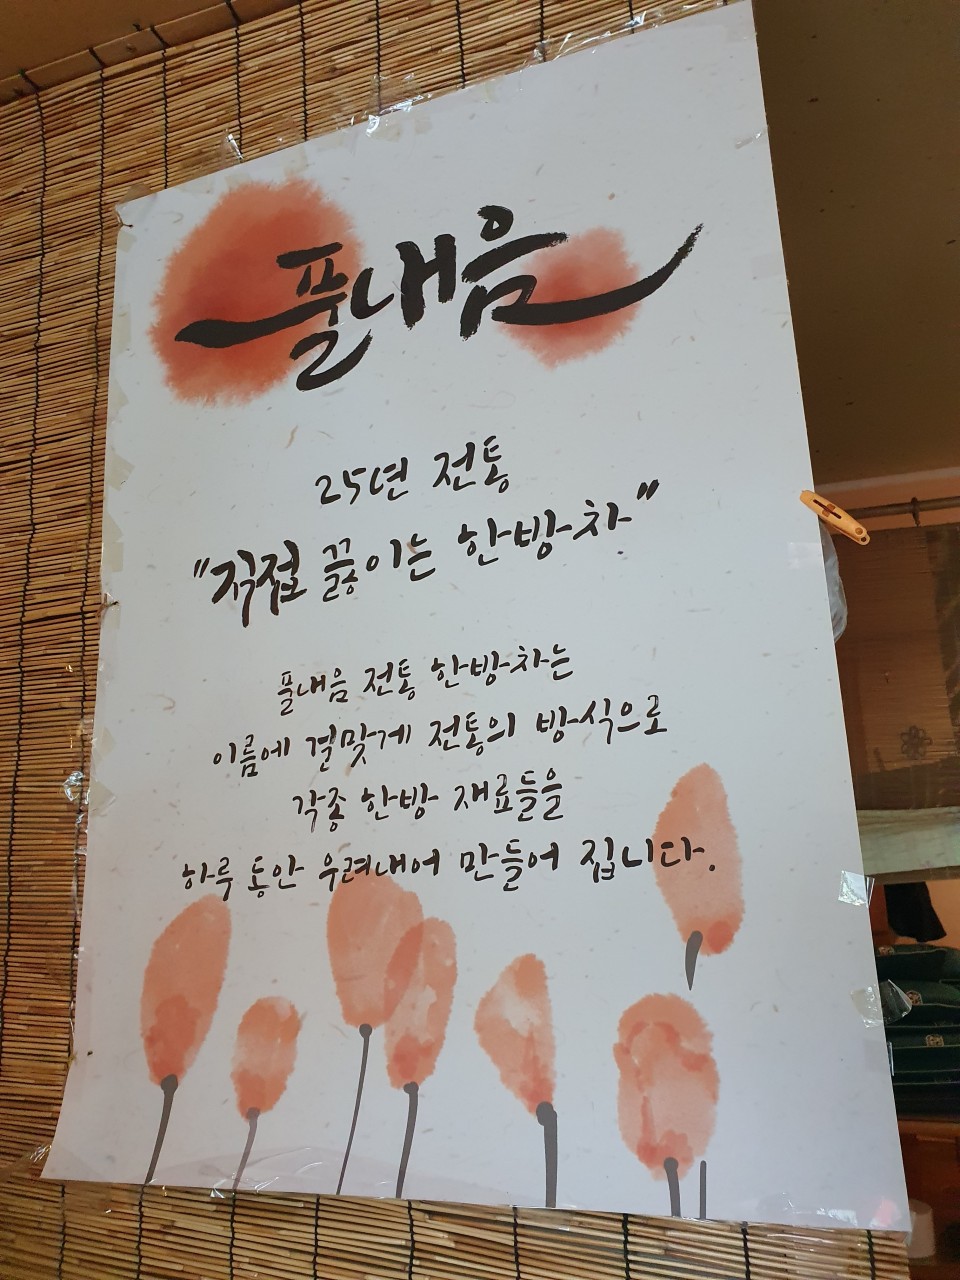 풀내음
25년 전통
"직접 끓이는 한방차"
풀내음 전통 한방차는
이름에 걸맞게 전통의 방식으로
각종 한방 재료들을
하루 동안 우려내어 만들어 집니다.